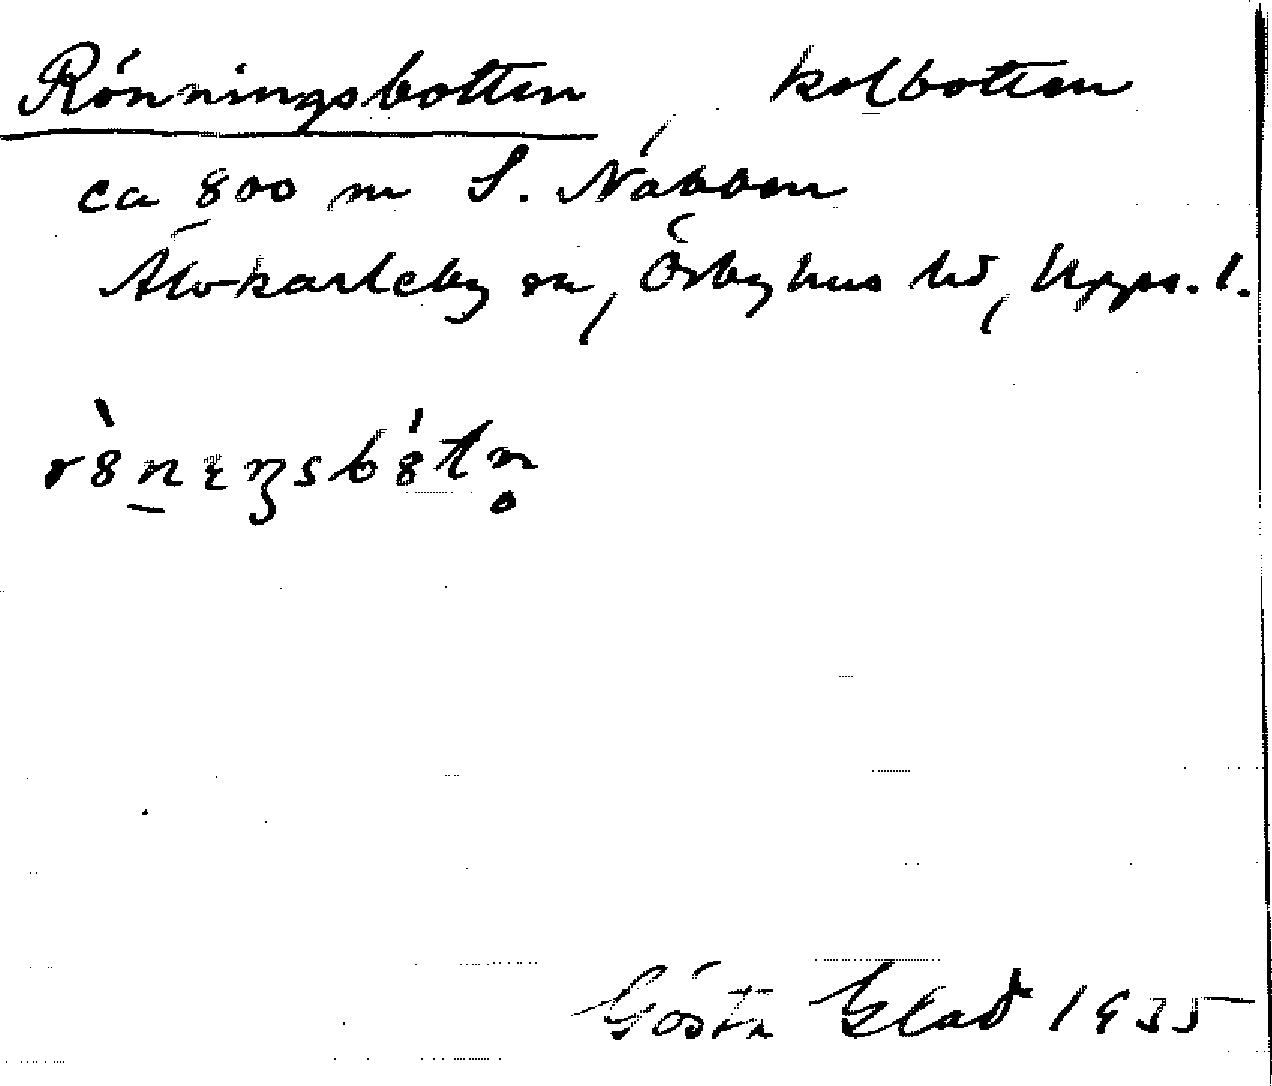 Rönningsbotten kolbotten
ca 800 m S. Näbben
Älvkarleby sn, Örbyhus hd, Upps. l.
Gösta Elad 1935